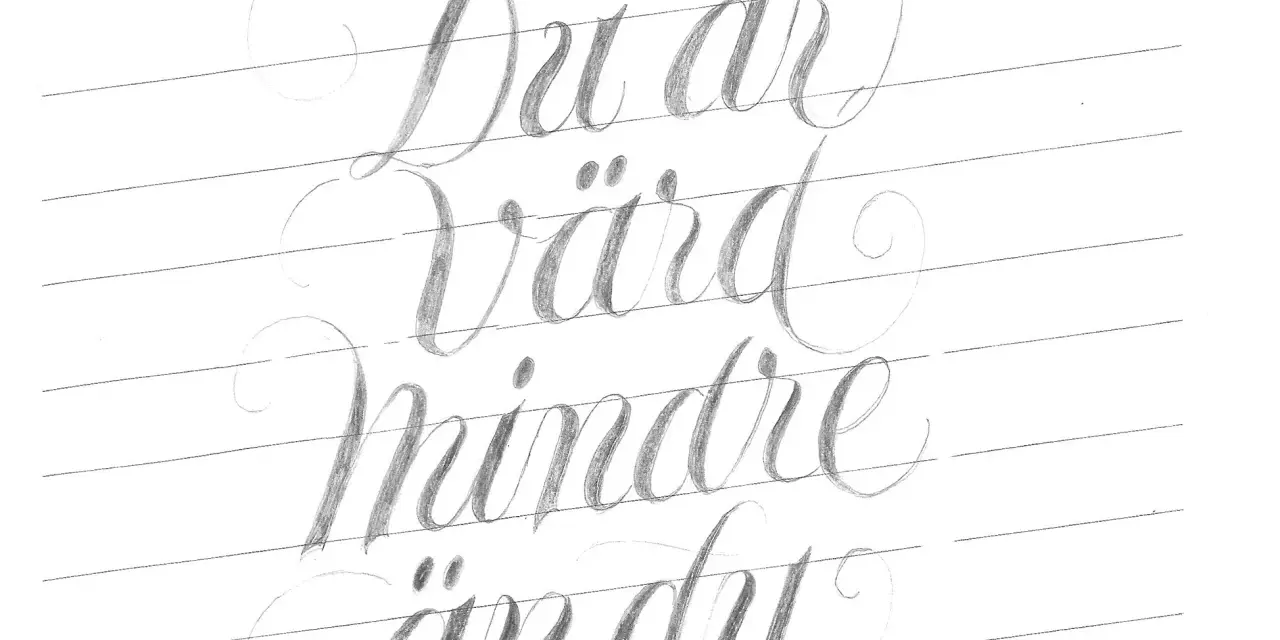 Du är
värd
mindre
än du